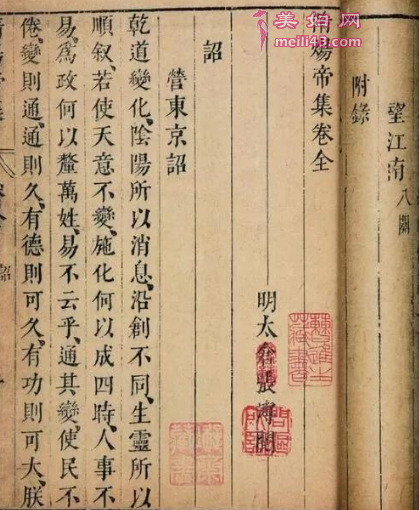 meili43.com
望江南八闋
附錄
隋煬帝集卷全
明太倉張溥閱
詔
營東京詔
乾道變化、陰陽所以消息、沿創不同、生靈所以
順叙、若使天意不變、施化何以成四時、人事不
易、爲政何以釐萬姓、易不云乎、通其變、使民不
倦、變則通、通則久、有德則可久、有功則可大、朕
詔